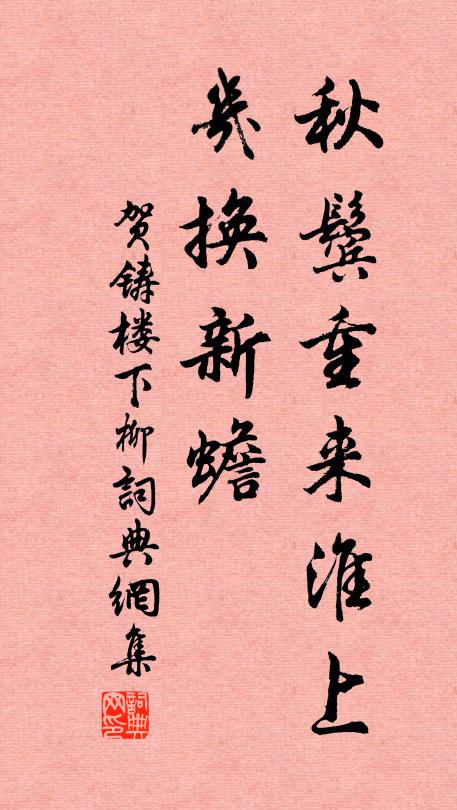 秋鬓重来淮上
几换新蟾
贺铸楼下柳詞典網集
詞典网印